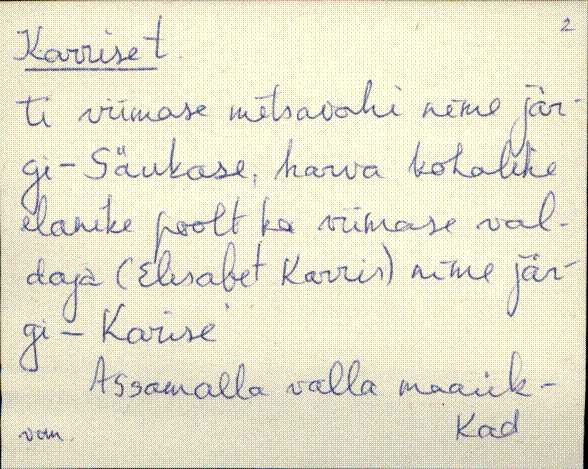 Karriset. 2
ti viimase metsavahi nime jär-
gi - Säukase, harva kohalike
elanike poolt ka viimase val-
daja (Elisabet Karris) nime jär-
gi - Karise
Assamalla valla maaük-
Kad